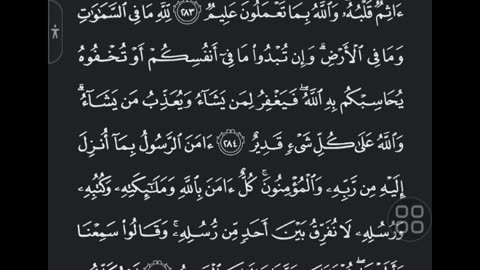 ءَاثِمٌ قَلْبُهُۥ وَٱللَّهُ بِمَا تَعْمَلُونَ عَلِيمٌ ٢٨٣ لِّلَّهِ مَا فِى ٱلسَّمَٰوَٰتِ
وَمَا فِى ٱلْأَرْضِ ۗ وَإِن تُبْدُوا۟ مَا فِىٓ أَنفُسِكُمْ أَوْ تُخْفُوهُ
يُحَاسِبْكُم بِهِ ٱللَّهُ ۖ فَيَغْفِرُ لِمَن يَشَآءُ وَيُعَذِّبُ مَن يَشَآءُ ۗ
وَٱللَّهُ عَلَىٰ كُلِّ شَىْءٍ قَدِيرٌ ٢٨٤ ءَامَنَ ٱلرَّسُولُ بِمَآ أُنزِلَ
إِلَيْهِ مِن رَّبِّهِۦ وَٱلْمُؤْمِنُونَ ۚ كُلٌّ ءَامَنَ بِٱللَّهِ وَمَلَٰٓئِكَتِهِۦ وَكُتُبِهِۦ
وَرُسُلِهِۦ لَا نُفَرِّقُ بَيْنَ أَحَدٍ مِّن رُّسُلِهِۦ ۚ وَقَالُوا۟ سَمِعْنَا